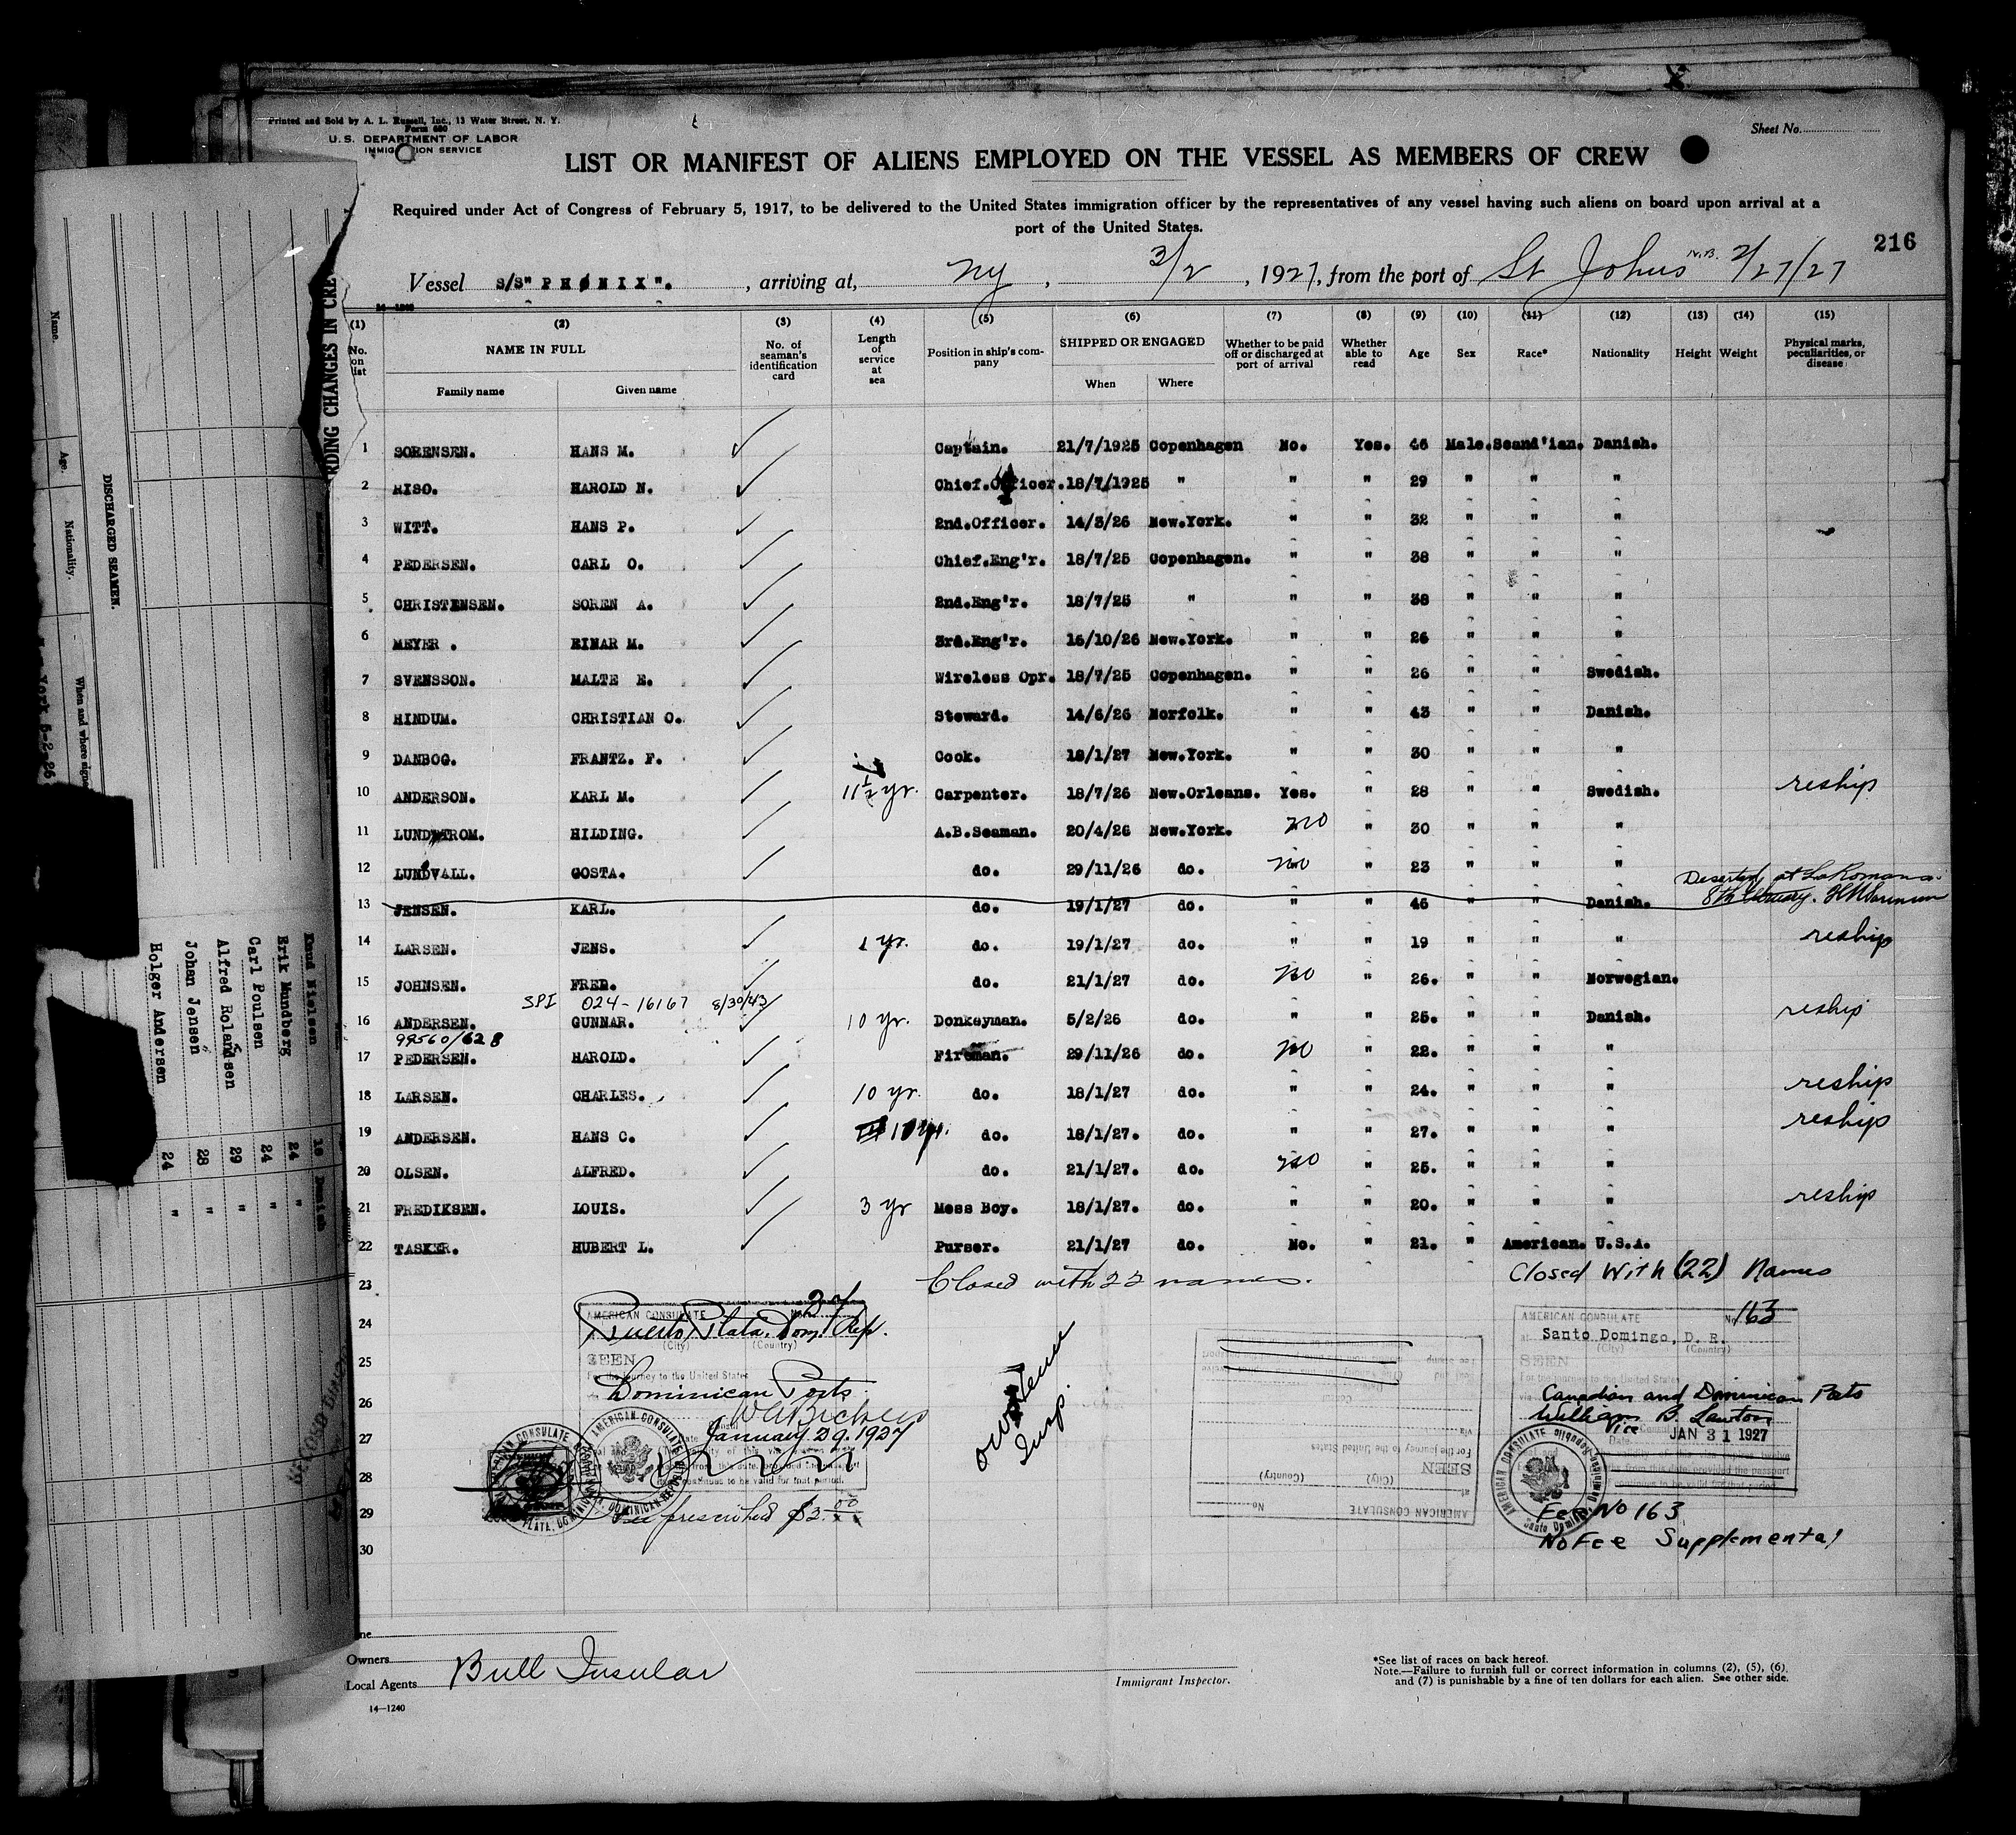 Printed and Sold by A. L. Russell, Inc., 13 Water Street, N. Y.
Form 680
U. S. DEPARTMENT OF LABOR
IMMIGRATION SERVICE
Sheet No.
LIST OR MANIFEST OF ALIENS EMPLOYED ON THE VESSEL AS MEMBERS OF CREW
Required under Act of Congress of February 5, 1917, to be delivered to the United States immigration officer by the representatives of any vessel having such aliens on board upon arrival at a
port of the United States.
216
Vessel S/S" PHØNIX". , arriving at, NY , 3/2 , 1927, from the port of St Johns N.B. 2/27/27
(1) (2) (3) (4) (5) (6) (7) (8) (9) (10) (11) (12) (13) (14) (15)
No. on list
NAME IN FULL
Family name Given name
No. of seaman's identification card
Length of service at sea
Position in ship's company
SHIPPED OR ENGAGED
When Where
Whether to be paid off or discharged at port of arrival
Whether able to read
Age
Sex
Race*
Nationality
Height
Weight
Physical marks, peculiarities, or disease
1 SORENSEN. HANS M. Captain. 21/7/1925 Copenhagen No. Yes. 46 Male. Scand'ian. Danish.
2 RISO. HAROLD N. Chief.Officer. 18/7/1925 " " " 29 " " "
3 WITT. HANS P. 2nd.Officer. 14/3/26 New.York. " " 32 " " "
4 PEDERSEN. CARL O. Chief.Eng'r. 18/7/25 Copenhagen. " " 38 " " "
5 CHRISTENSEN. SOREN A. 2nd.Eng'r. 18/7/25 " " " 38 " " "
6 MEYER . EINAR M. 3rd.Eng'r. 16/10/26 New.York. " " 26 " " "
7 SVENSSON. MALTE E. Wireless Opr. 18/7/25 Copenhagen. " " 26 " " Swedish.
8 HINDUM. CHRISTIAN O. Steward. 14/6/26 Norfolk. " " 43 " " Danish.
9 DANBOG. FRANTZ. F. Cook. 18/1/27 New.York. " " 30 " " "
10 ANDERSON. KARL M. 11½ yr. Carpenter. 18/7/26 New.Orleans. Yes. " 28 " " Swedish. reship
11 LUNDSTROM. HILDING. A.B.Seaman. 20/4/26 New.York. no " 30 " " "
12 LUNDVALL. GOSTA. do. 29/11/26 do. no " 23 " " "
Deserted at La Romana.
13 JENSEN. KARL. do. 19/1/27 do. " " 46 " " Danish. 8th February. HMSorensen
14 LARSEN. JENS. 1 yr. do. 19/1/27 do. " " 19 " " " reship
15 JOHNSEN. FRED. do. 21/1/27 do. no " 26. " " Norwegian.
SPI 024-16167 8/30/43
16 ANDERSEN. GUNNAR. 10 yr. Donkeyman. 5/2/26 do. " " 25. " " Danish. reship
99560/628
17 PEDERSEN. HAROLD. Fireman. 29/11/26 do. no " 22. " " "
18 LARSEN. CHARLES. 10 yr. do. 18/1/27 do. " " 24. " " " reship
19 ANDERSEN. HANS C. 10 yr. do. 18/1/27. do. " " 27. " " " reship
20 OLSEN. ALFRED. do. 21/1/27. do. no " 25. " " "
21 FREDIKSEN. LOUIS. 3 yr Mess Boy. 18/1/27. do. " " 20. " " " reship
22 TASKER. HUBERT L. Purser. 21/1/27 do. No. " 21. " American. U.S.A.
23 Closed with 22 names. Closed With (22) Names
24
25
26
27
28
29
30
AMERICAN CONSULATE No. 27
Puerto Plata, Dom. Rep.
(City) (Country)
SEEN
For the journey to the United States
Dominican Ports
WABickers
January 29, 1927
Fee prescribed $2.00
AMERICAN CONSULATE
PLATA, DOMINICAN REPUBLIC
Insp.
AMERICAN CONSULATE No.
at (City) (Country)
SEEN
For the journey to the United States
via
AMERICAN CONSULATE No. 163
at Santo Domingo, D. R.
(City) (Country)
SEEN
For the journey to the United States
via Canadian and Dominican Ports
William B. Lawton
Vice Consul
Date JAN 31 1927
AMERICAN CONSULATE Santo Domingo, Dominican Republic
Fee No 163
No Fee Supplemental
Owners
Local Agents Bull Insular
14—1240
Immigrant Inspector.
*See list of races on back hereof.
Note.—Failure to furnish full or correct information in columns (2), (5), (6),
and (7) is punishable by a fine of ten dollars for each alien. See other side.
RDING CHANGES IN CRE
DISCHARGED SEAMEN.
Name.
Age.
Nationality.
When and where signe
York 5-2-26
Knud Nielsen 18 Danish
Erik Mundberg 24 "
Carl Poulsen 24 "
Alfred Rolandsen 29 "
Johan Jensen 28 "
Holger Andersen 24 "